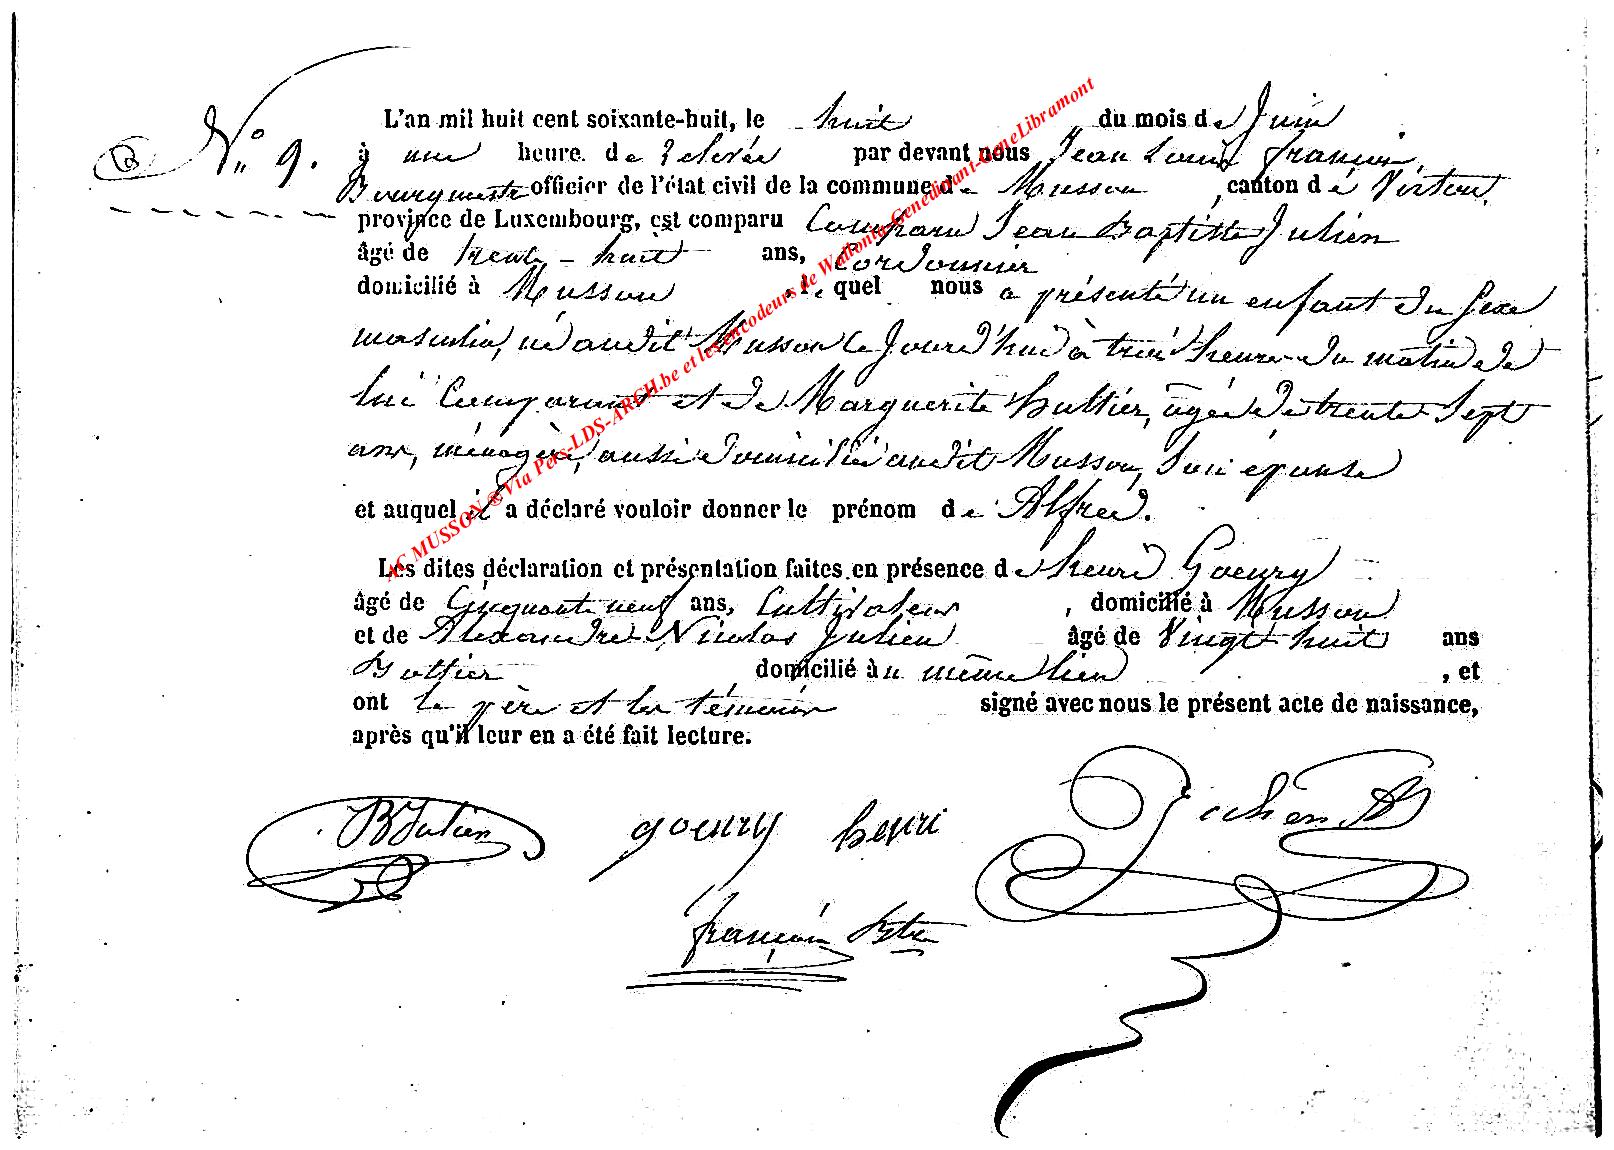 L'an mil huit cent soixante-huit, le huit du mois de Juin
N° 9. à une heure de relevée par devant nous Jean Louis françois,
Bourgmestre officier de l'état civil de la commune de Musson, canton de Virton,
province de Luxembourg, est comparu Comparu Jean Baptiste Julien
âgé de trente-huit ans, Cordonnier
domicilié à Musson, lequel nous a présenté un enfant du sexe
masculin, né audit Musson ce jourd'hui à trois heures du matin de
lui Comparant et de Marguerite hultier, âgée de trente-sept
ans, ménagère, aussi domiciliée audit Musson, son épouse
et auquel il a déclaré vouloir donner le prénom de Alfred.
Les dites déclaration et présentation faites en présence de henri Goeury
âgé de Cinquante neuf ans, Cultivateur, domicilié à Musson
et de Alexandre Nicolas Julien âgé de Vingt huit ans
domicilié au même lieu, et
ont le père et les témoins signé avec nous le présent acte de naissance,
après qu'il leur en a été fait lecture.
BJulien goeury henri Julien A
françois
AC MUSSON ®Via Pers-LDS-ARCH.be et les encodeurs de Wallonia-Genedinant-GeneLibramont